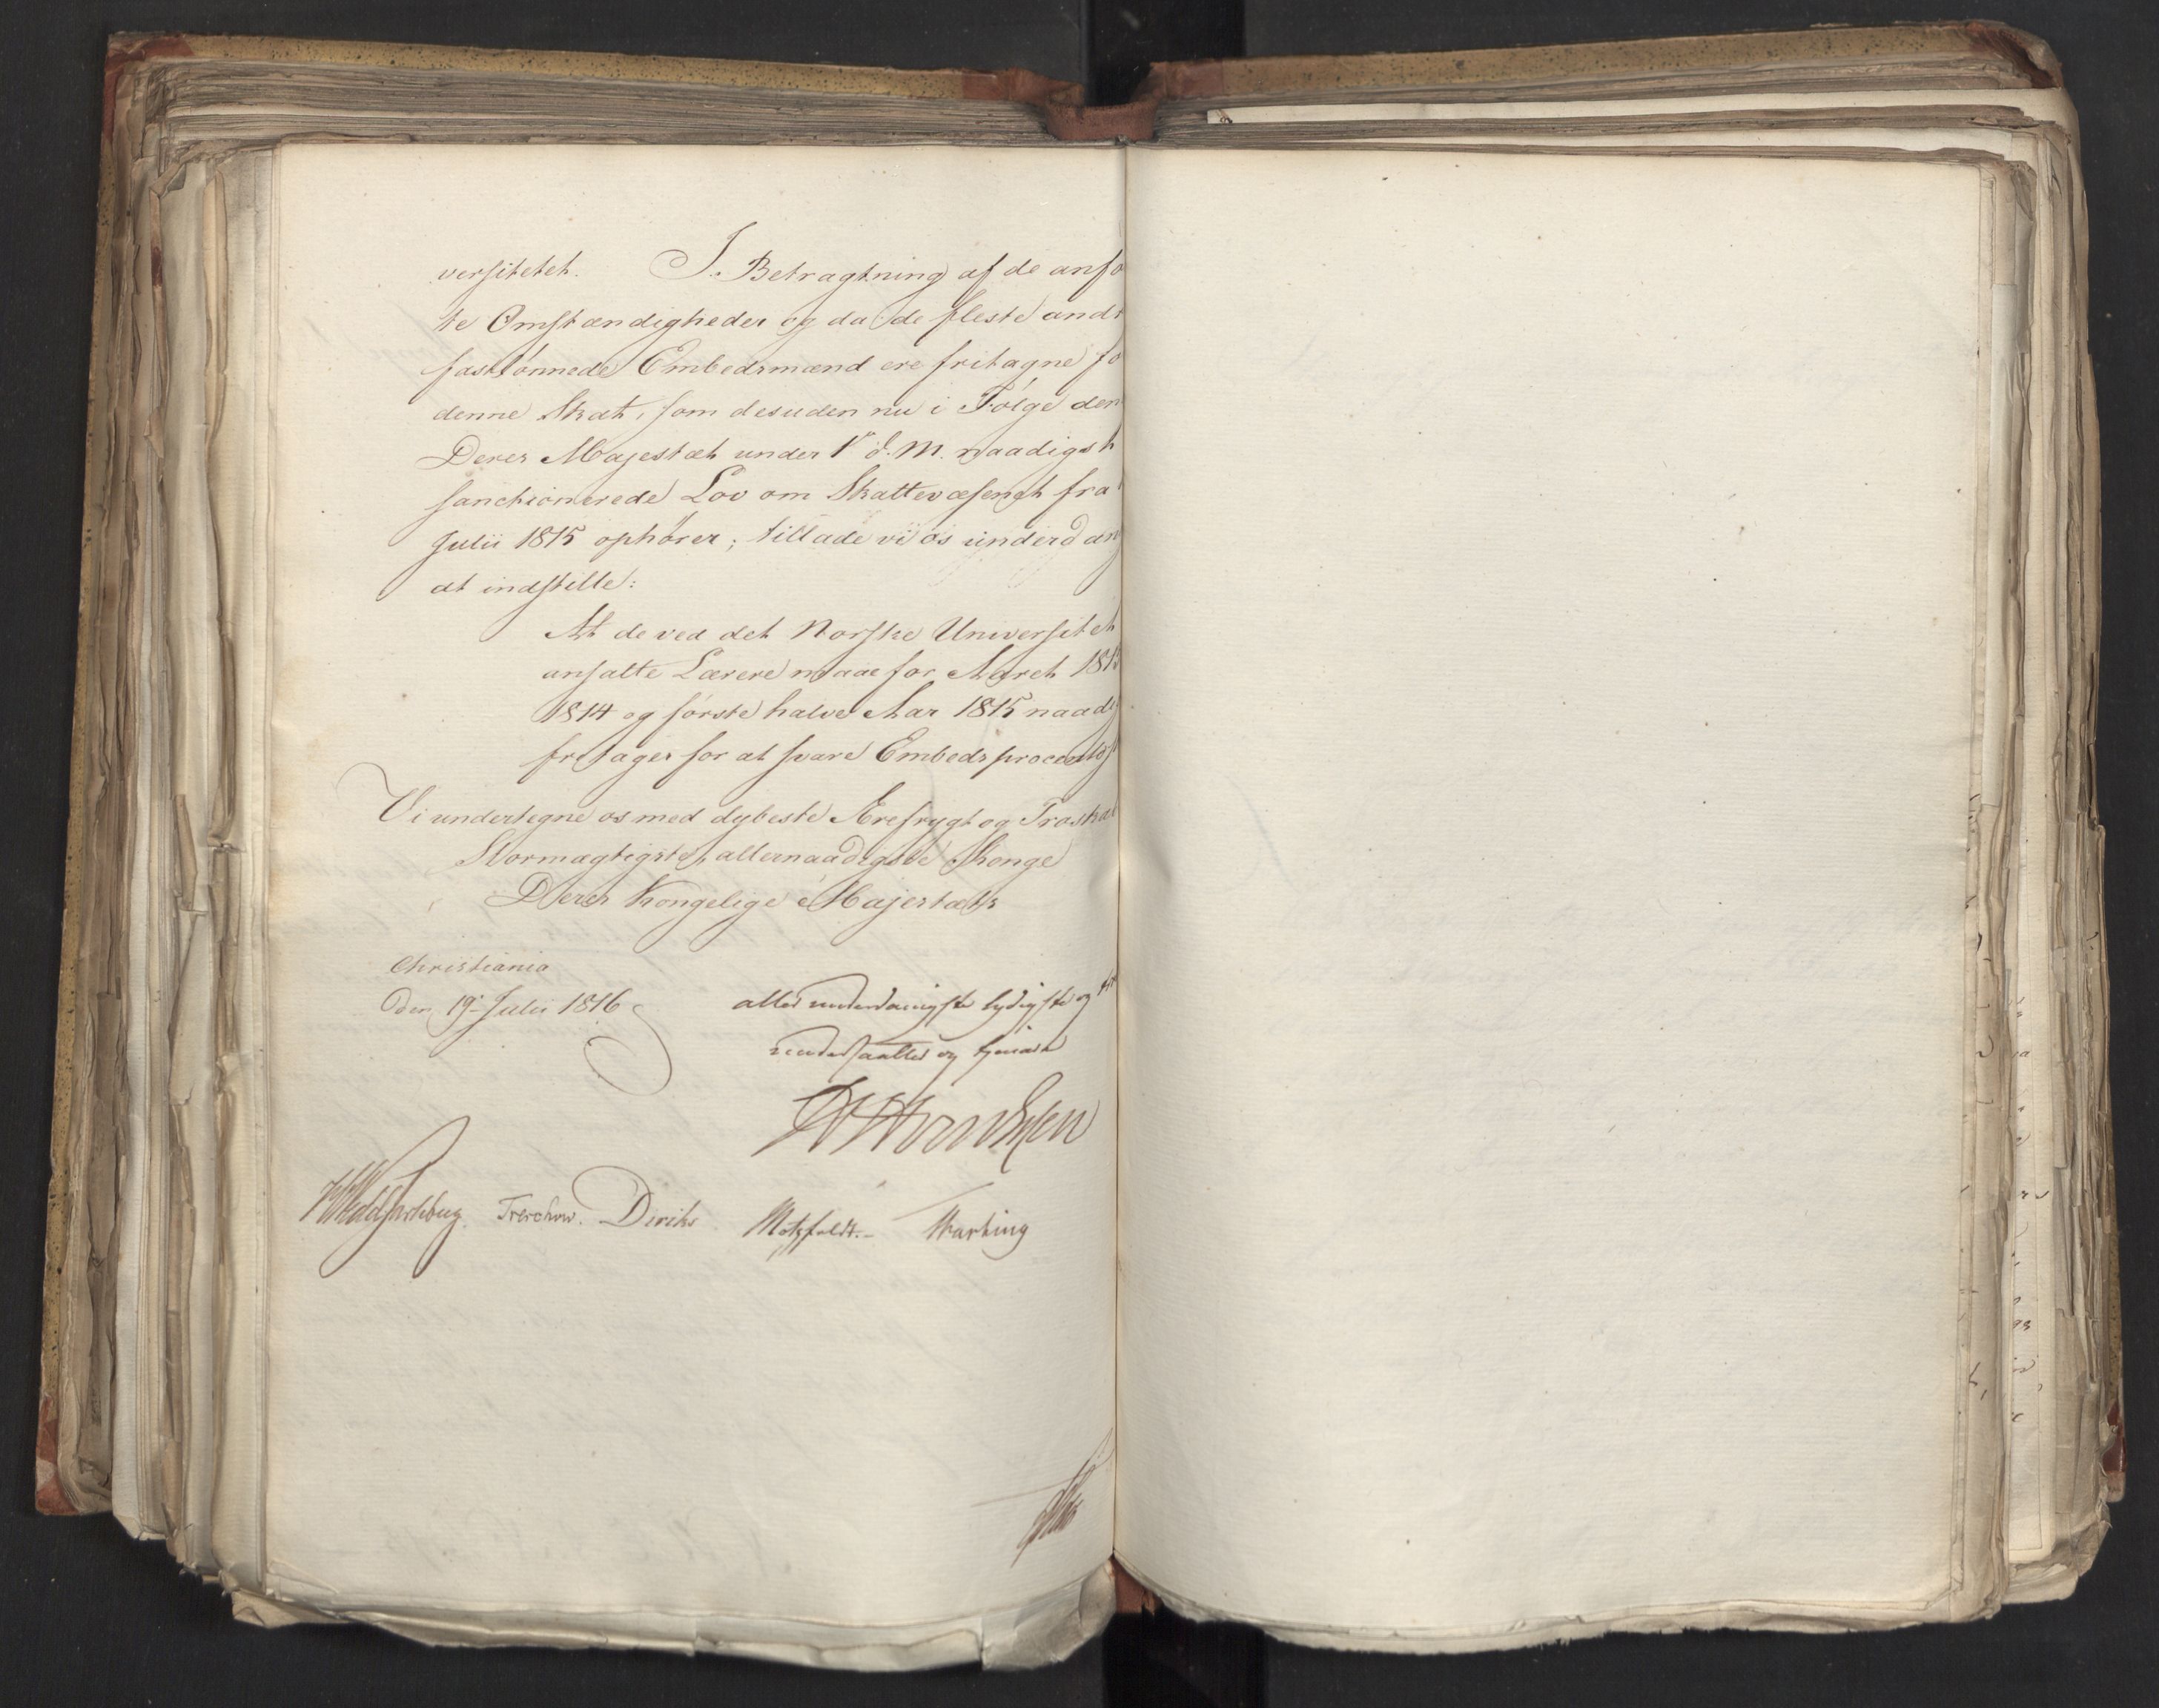 versitetet. I Betragtning af de anfø
te Omstændigheder og da de fleste andr
fastlønnede Embedsmænd ere fritagne fo
denne Skat, som desuden nu i Følge den
Deres Majestæt under 1ste d. M. naadigst
sanctionerede Lov om Skattevæsenet fra
Julii 1815 ophører; tillade vi os underdan
at indstille:
At de ved det Norske Universitet
ansatte Lærere maae for Aaret 181
1814 og første halve Aar 1815 naadi
fritages for at svare Embedsprocent
Vi undertegne os med dybeste Ærefrygt og Troskab
Stormægtigste, allernaadigste Konge
Deres Kongelige Majestæts
Christiania
den 19de Julii 1816
allerunderdanigste lydigste og
undersaatter og tjenere
Treschow. Diriks Motzfeldt.